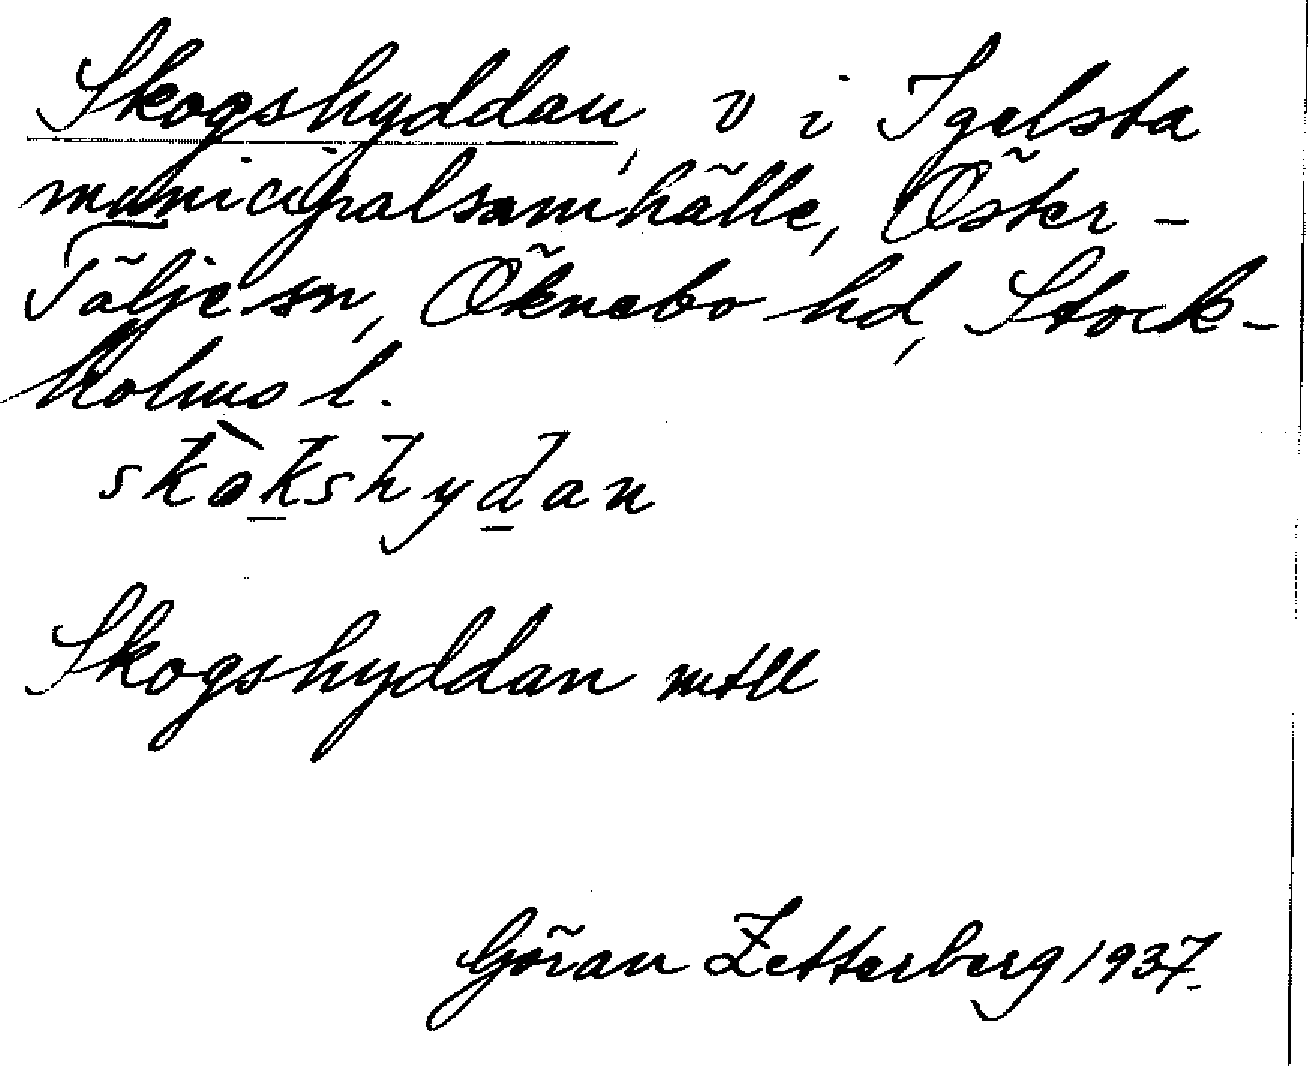 Skogshyddan, v i Igelsta
municipalsamhälle, Öster-
Tälje sn, Öknebo hd, Stock-
holms l.
skòkshydan
Skogshyddan mtll
Göran Zetterberg 1937.